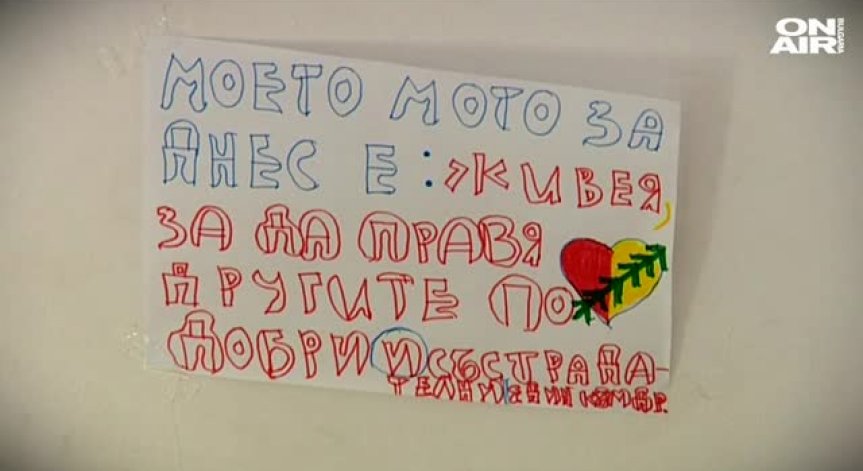 ON AIR BULGARIA
МОЕТО МОТО ЗА
ДНЕС Е: ЖИВЕЯ,
ЗА ДА ПРАВЯ
ДРУГИТЕ ПО
ДОБРИ И СЪСТРАДА-
ТЕЛНИ